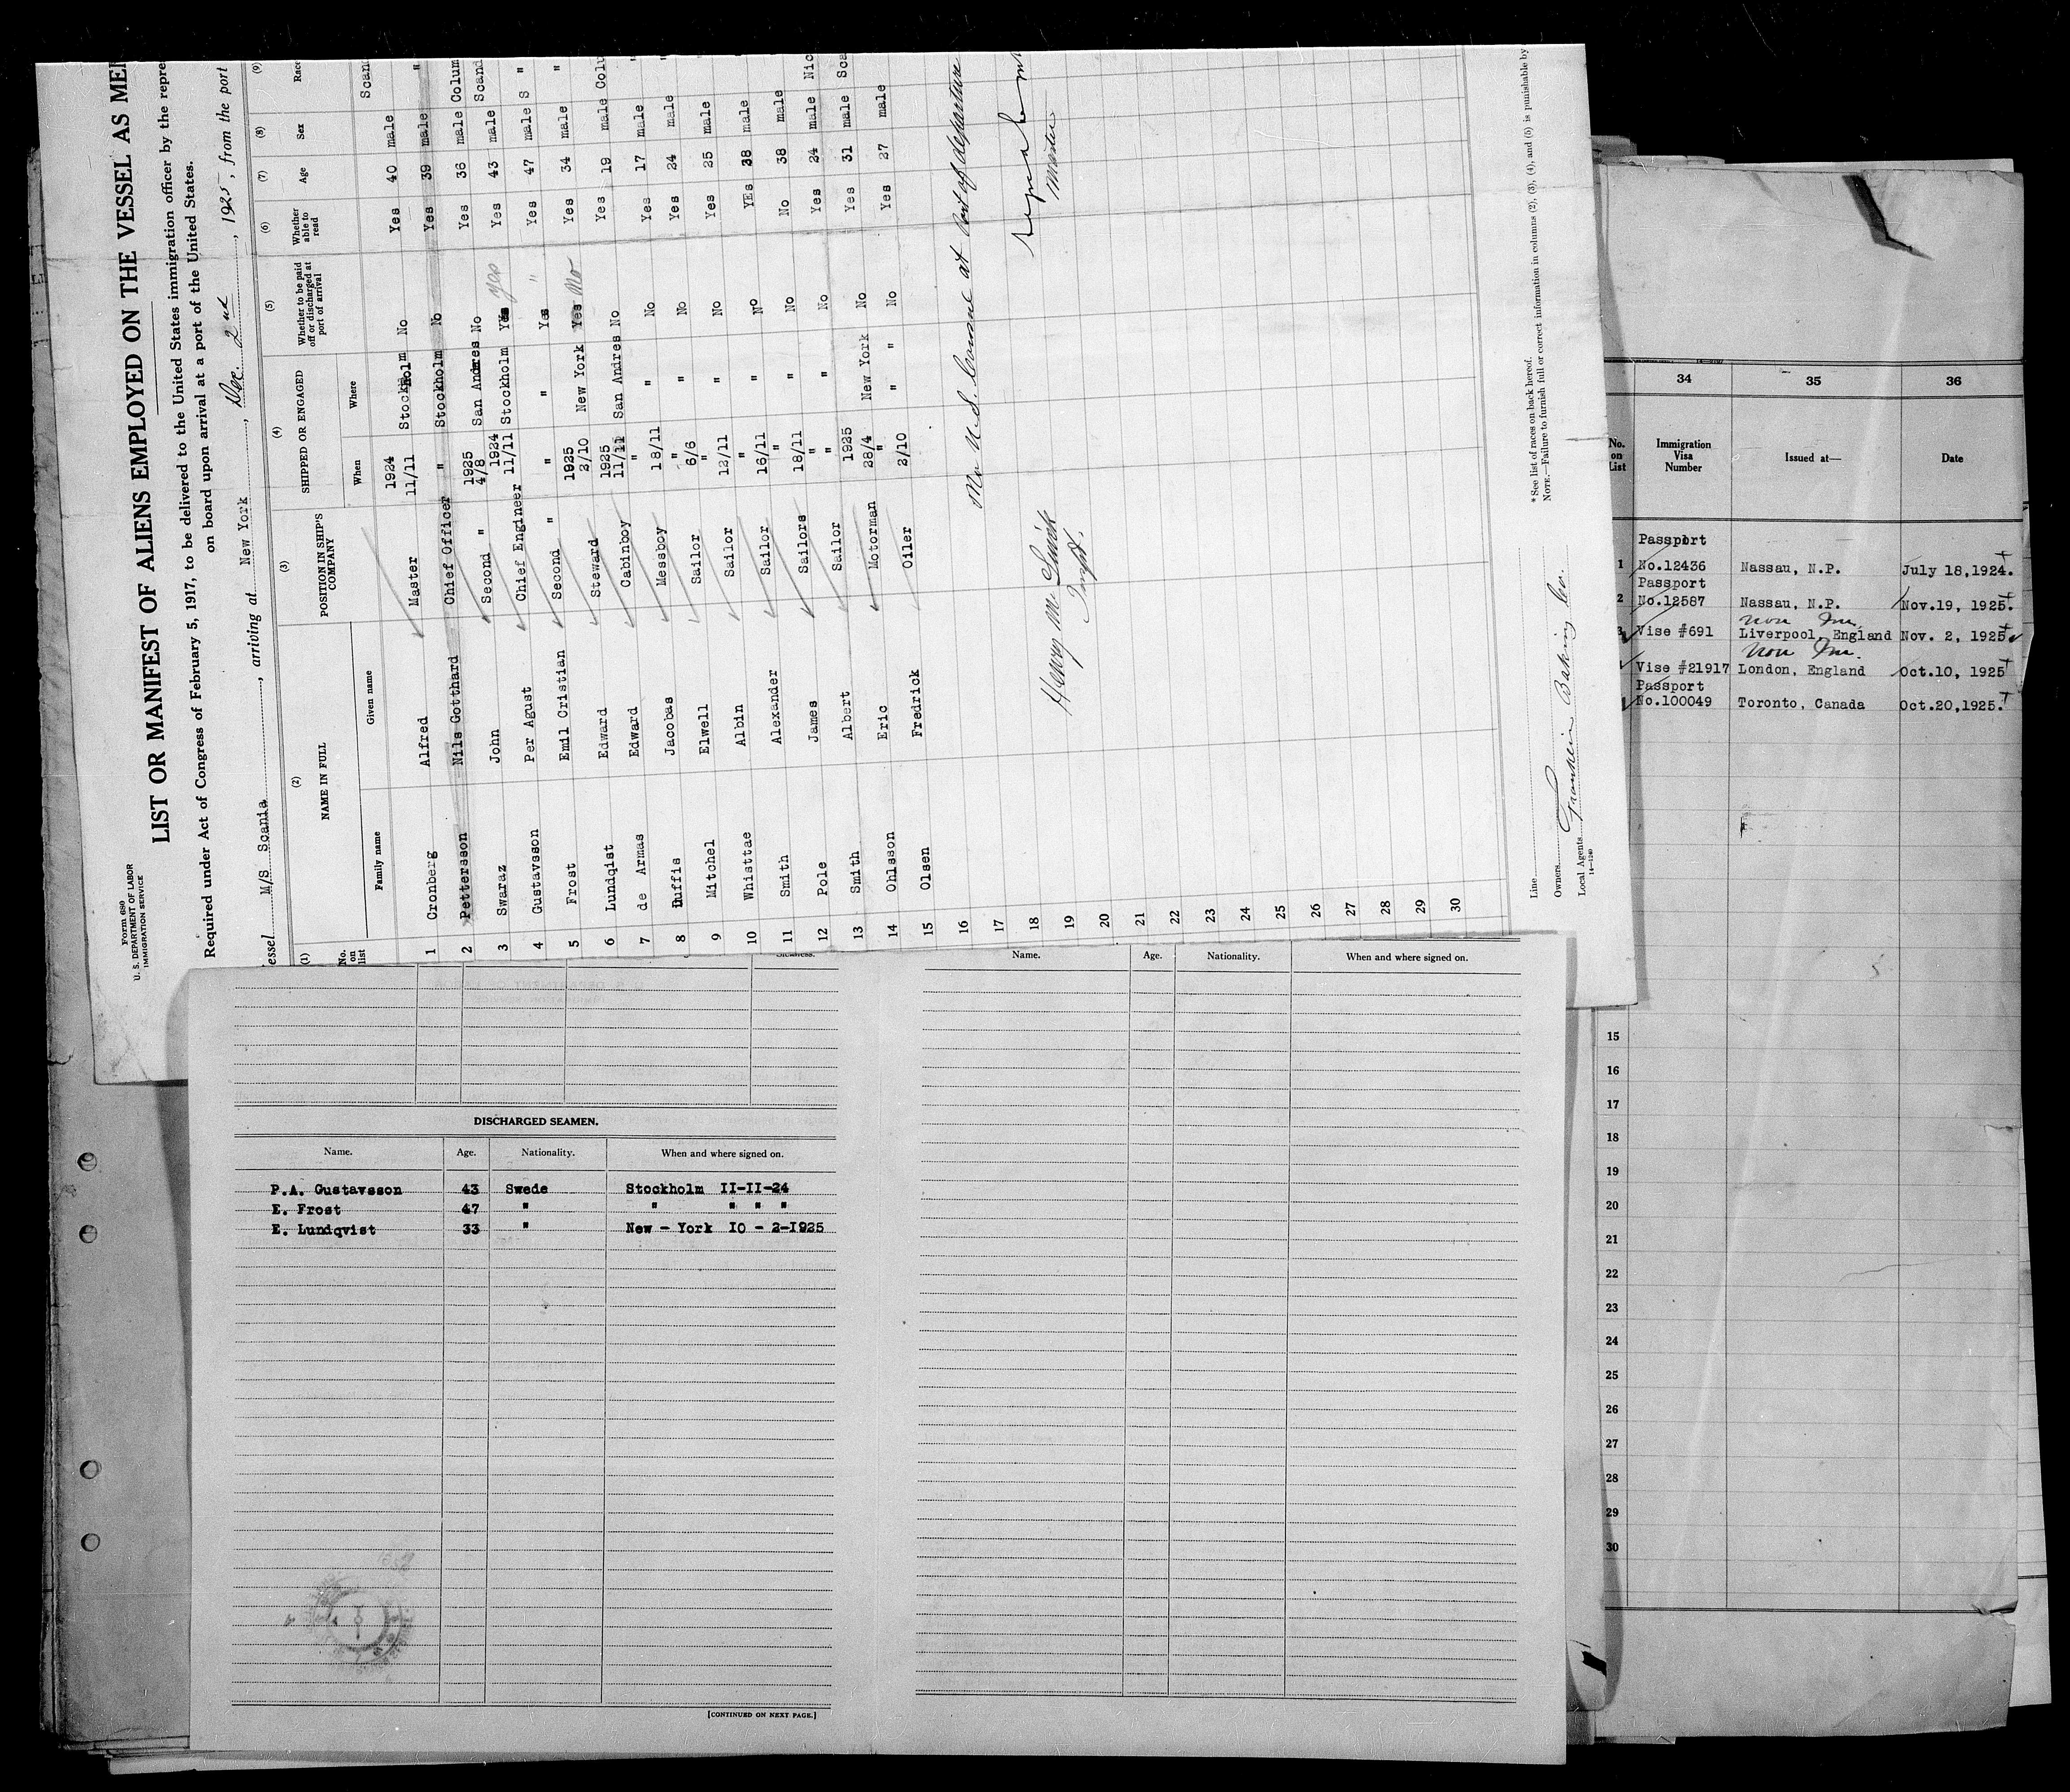 Form 680
U. S. DEPARTMENT OF LABOR
IMMIGRATION SERVICE
LIST OR MANIFEST OF ALIENS EMPLOYED ON THE VESSEL AS MEM
Required under Act of Congress of February 5, 1917, to be delivered to the United States immigration officer by the repre
on board upon arrival at a port of the United States.
essel M/S Scania, arriving at New York, Dec. 2nd, 1925, from the port
(1) (2) (3) (4) (5) (6) (7) (8) (9)
No. on list NAME IN FULL POSITION IN SHIP'S COMPANY SHIPPED OR ENGAGED Whether to be paid off or discharged at port of arrival Whether able to read Age Sex Race
Family name Given name When Where
1 Cronberg Alfred Master 1924 11/11 Stockholm No Yes 40 male Scan
2 Pettersson Nils Gotthard Chief Officer " Stockholm No Yes 39 male "
3 Swaraz John Second " 1925 4/8 San Andres No Yes 36 male Colum
4 Gustavsson Per Agust Chief Engineer 1924 11/11 Stockholm Yes yes Yes 43 male Scand
5 Frost Emil Cristian Second " " " Yes " Yes 47 male S "
6 Lundqist Edward Steward 1925 2/10 New York Yes No Yes 34 male "
7 de Armas Edward Cabinboy 1925 11/11 San Andres No Yes 19 male Colu
8 Duffis Jacobas Messboy " 18/11 " No Yes 17 male "
9 Mitchel Elwell Sailor " 6/6 " No Yes 24 male
10 Whisttae Albin Sailor " 12/11 " No Yes 25 male
11 Smith Alexander Sailor " 16/11 " No YEs 38 male
12 Pole James Sailors " 18/11 " No No 38 male
13 Smith Albert Sailor " " " No Yes 24 male Nic
14 Ohlsson Eric Motorman 1925 28/4 New York No Yes 31 male Sca
15 Olsen Fredrick Oiler " 2/10 " " No Yes 27 male
16
17
18
19
20
21
22
23
24
25
26
27
28
29
30
No U.S. Consul at Port of departure
Master
Henry M.
Inspt.
Line
Owners
Local Agents Franklin Baking Co.
14—1240
* See list of races on back hereof.
NOTE.—Failure to furnish full or correct information in columns (2), (3), (4), and (5) is punishable by
DISCHARGED SEAMEN.
Name. Age. Nationality. When and where signed on.
P.A. Gustavsson 43 Swede Stockholm II-II-24
E. Frost 47 " " " " "
E. Lundqvist 33 " New - York IO - 2-I925
[CONTINUED ON NEXT PAGE.]
Name. Age. Nationality. When and where signed on.
34 35 36
No. on List Immigration Visa Number Issued at— Date
Passport
1 No.12436 Nassau, N.P. July 18,1924.
Passport
2 No.12587 Nassau, N.P. Nov.19, 1925.
non Im.
3 Vise #691 Liverpool, England Nov. 2, 1925
non Im.
Vise #21917 London, England Oct.10, 1925
Passport
No.100049 Toronto, Canada Oct.20,1925.
15
16
17
18
19
20
21
22
23
24
25
26
27
28
29
30